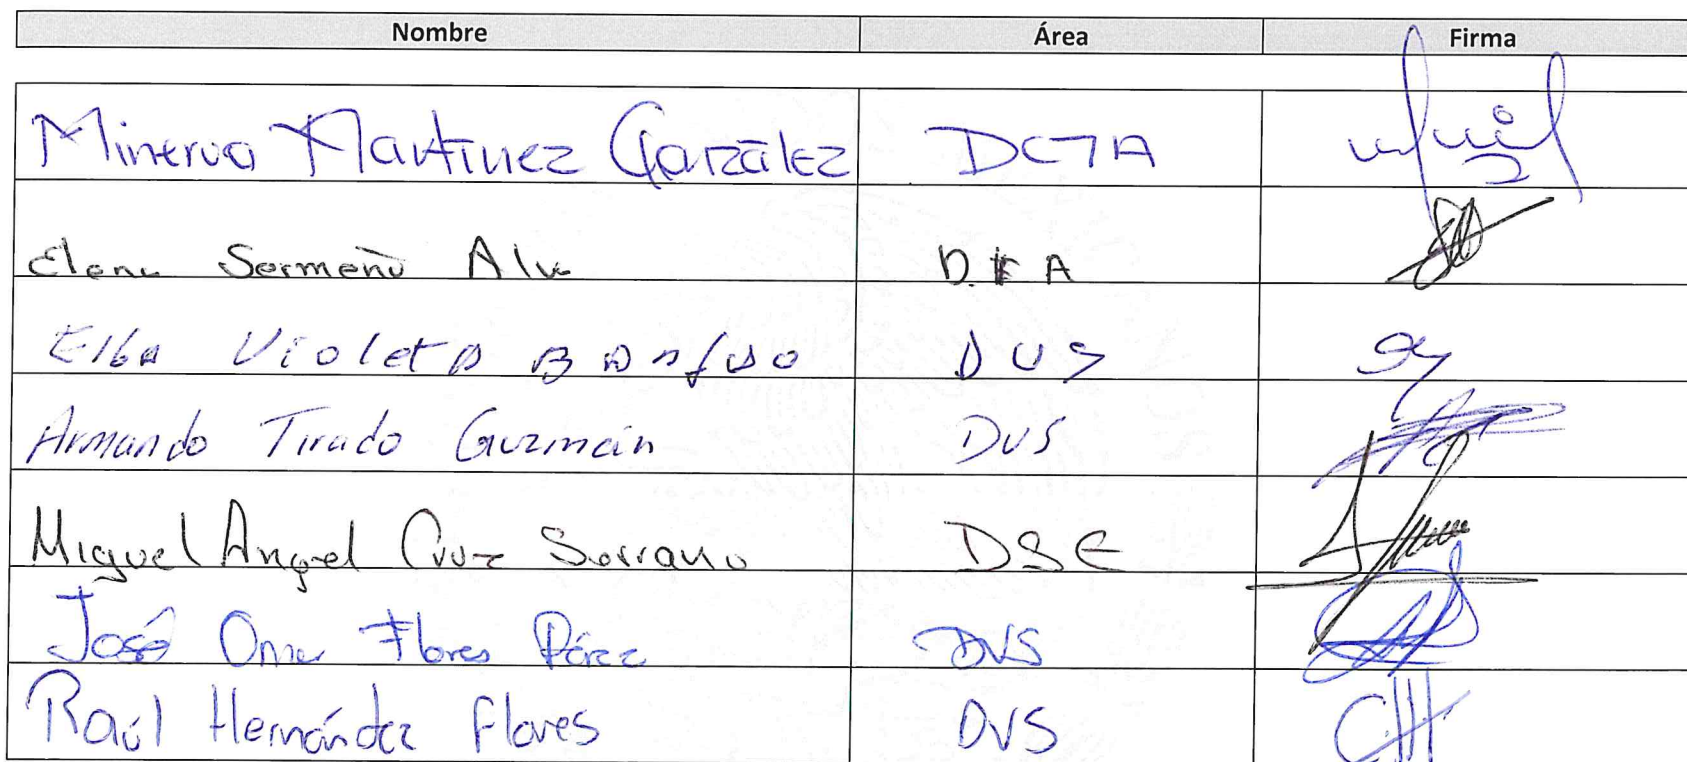 Nombre Área Firma
Minerva Martínez González DCTA
Elena Sermeño Alv D.F.A
Elba Violeta DVS
Armando Tirado Guzmán DVS
Miguel Angel Cruz Serrano DSE
José Omar Flores Pérez DVS
Raúl Hernández Flores DVS